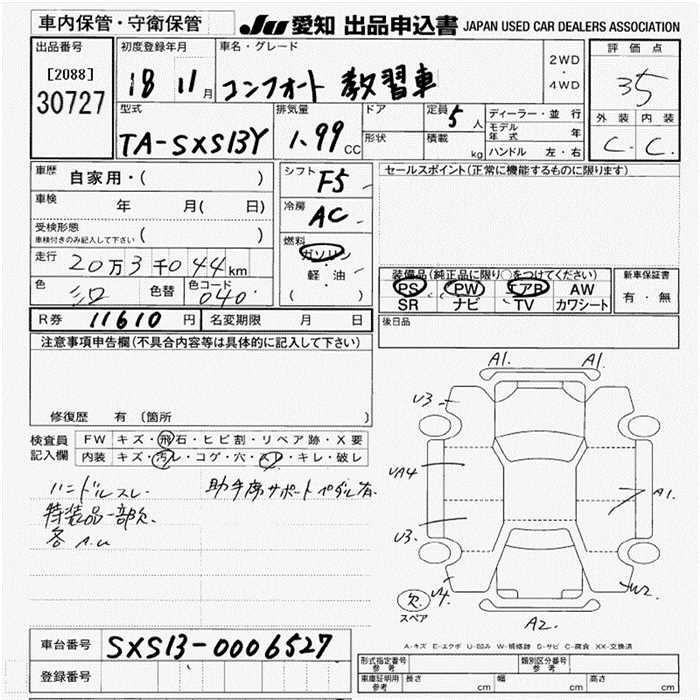 車内保管・守衛保管
JU 愛知 出品申込書 JAPAN USED CAR DEALERS ASSOCIATION
出品番号
[2088]
30727
初度登録年月
18 11月
車名・グレード
コンフォート 教習車
2WD
・
4WD
評価点
35
外装 内装
C. C.
型式
TA-SXS13Y
排気量
1.99 CC
ドア
形状
定員 5 人
積載 kg
ディーラー・並行
モデル年式 年
ハンドル 左・右
車歴 自家用・( )
車検 年 月( 日)
受検形態
車検付きのみ記入して下さい ( )
走行 20万3千044km
色 シロ 色替 色コード 040
シフト F5
冷房 AC
燃料
ガソリン
・
軽・油
( )
セールスポイント(正常に機能するものに限ります)
装備品(純正品に限り○をつけてください)
PS PW エアB AW
SR ナビ TV カワシート
新車保証書
有・無
後日品
R券 11610 円 名変期限 月 日
注意事項申告欄(不具合内容等は具体的に記入して下さい)
修復歴 有(箇所 )
検査員記入欄
FW キズ・飛石・ヒビ割・リペア跡・X要
内装 キズ・汚レ・コゲ・穴・スレ・キレ・破レ
ハンドルスレ. 助手席サポートペダル有.
特装品一部欠.
各 A.U
A1. A1.
U3.
UA4
A1.
U3.
U4. W2.
欠.
スペア
A2.
A-キズ E-エクボ U-凹み W-補修跡 S-サビ C-腐食 XX-交換済
車台番号 SXS13-0006527
登録番号
形式指定番号 参考 類別区分番号 参考
車庫証明用 参考 長さ cm 幅 cm 高さ cm